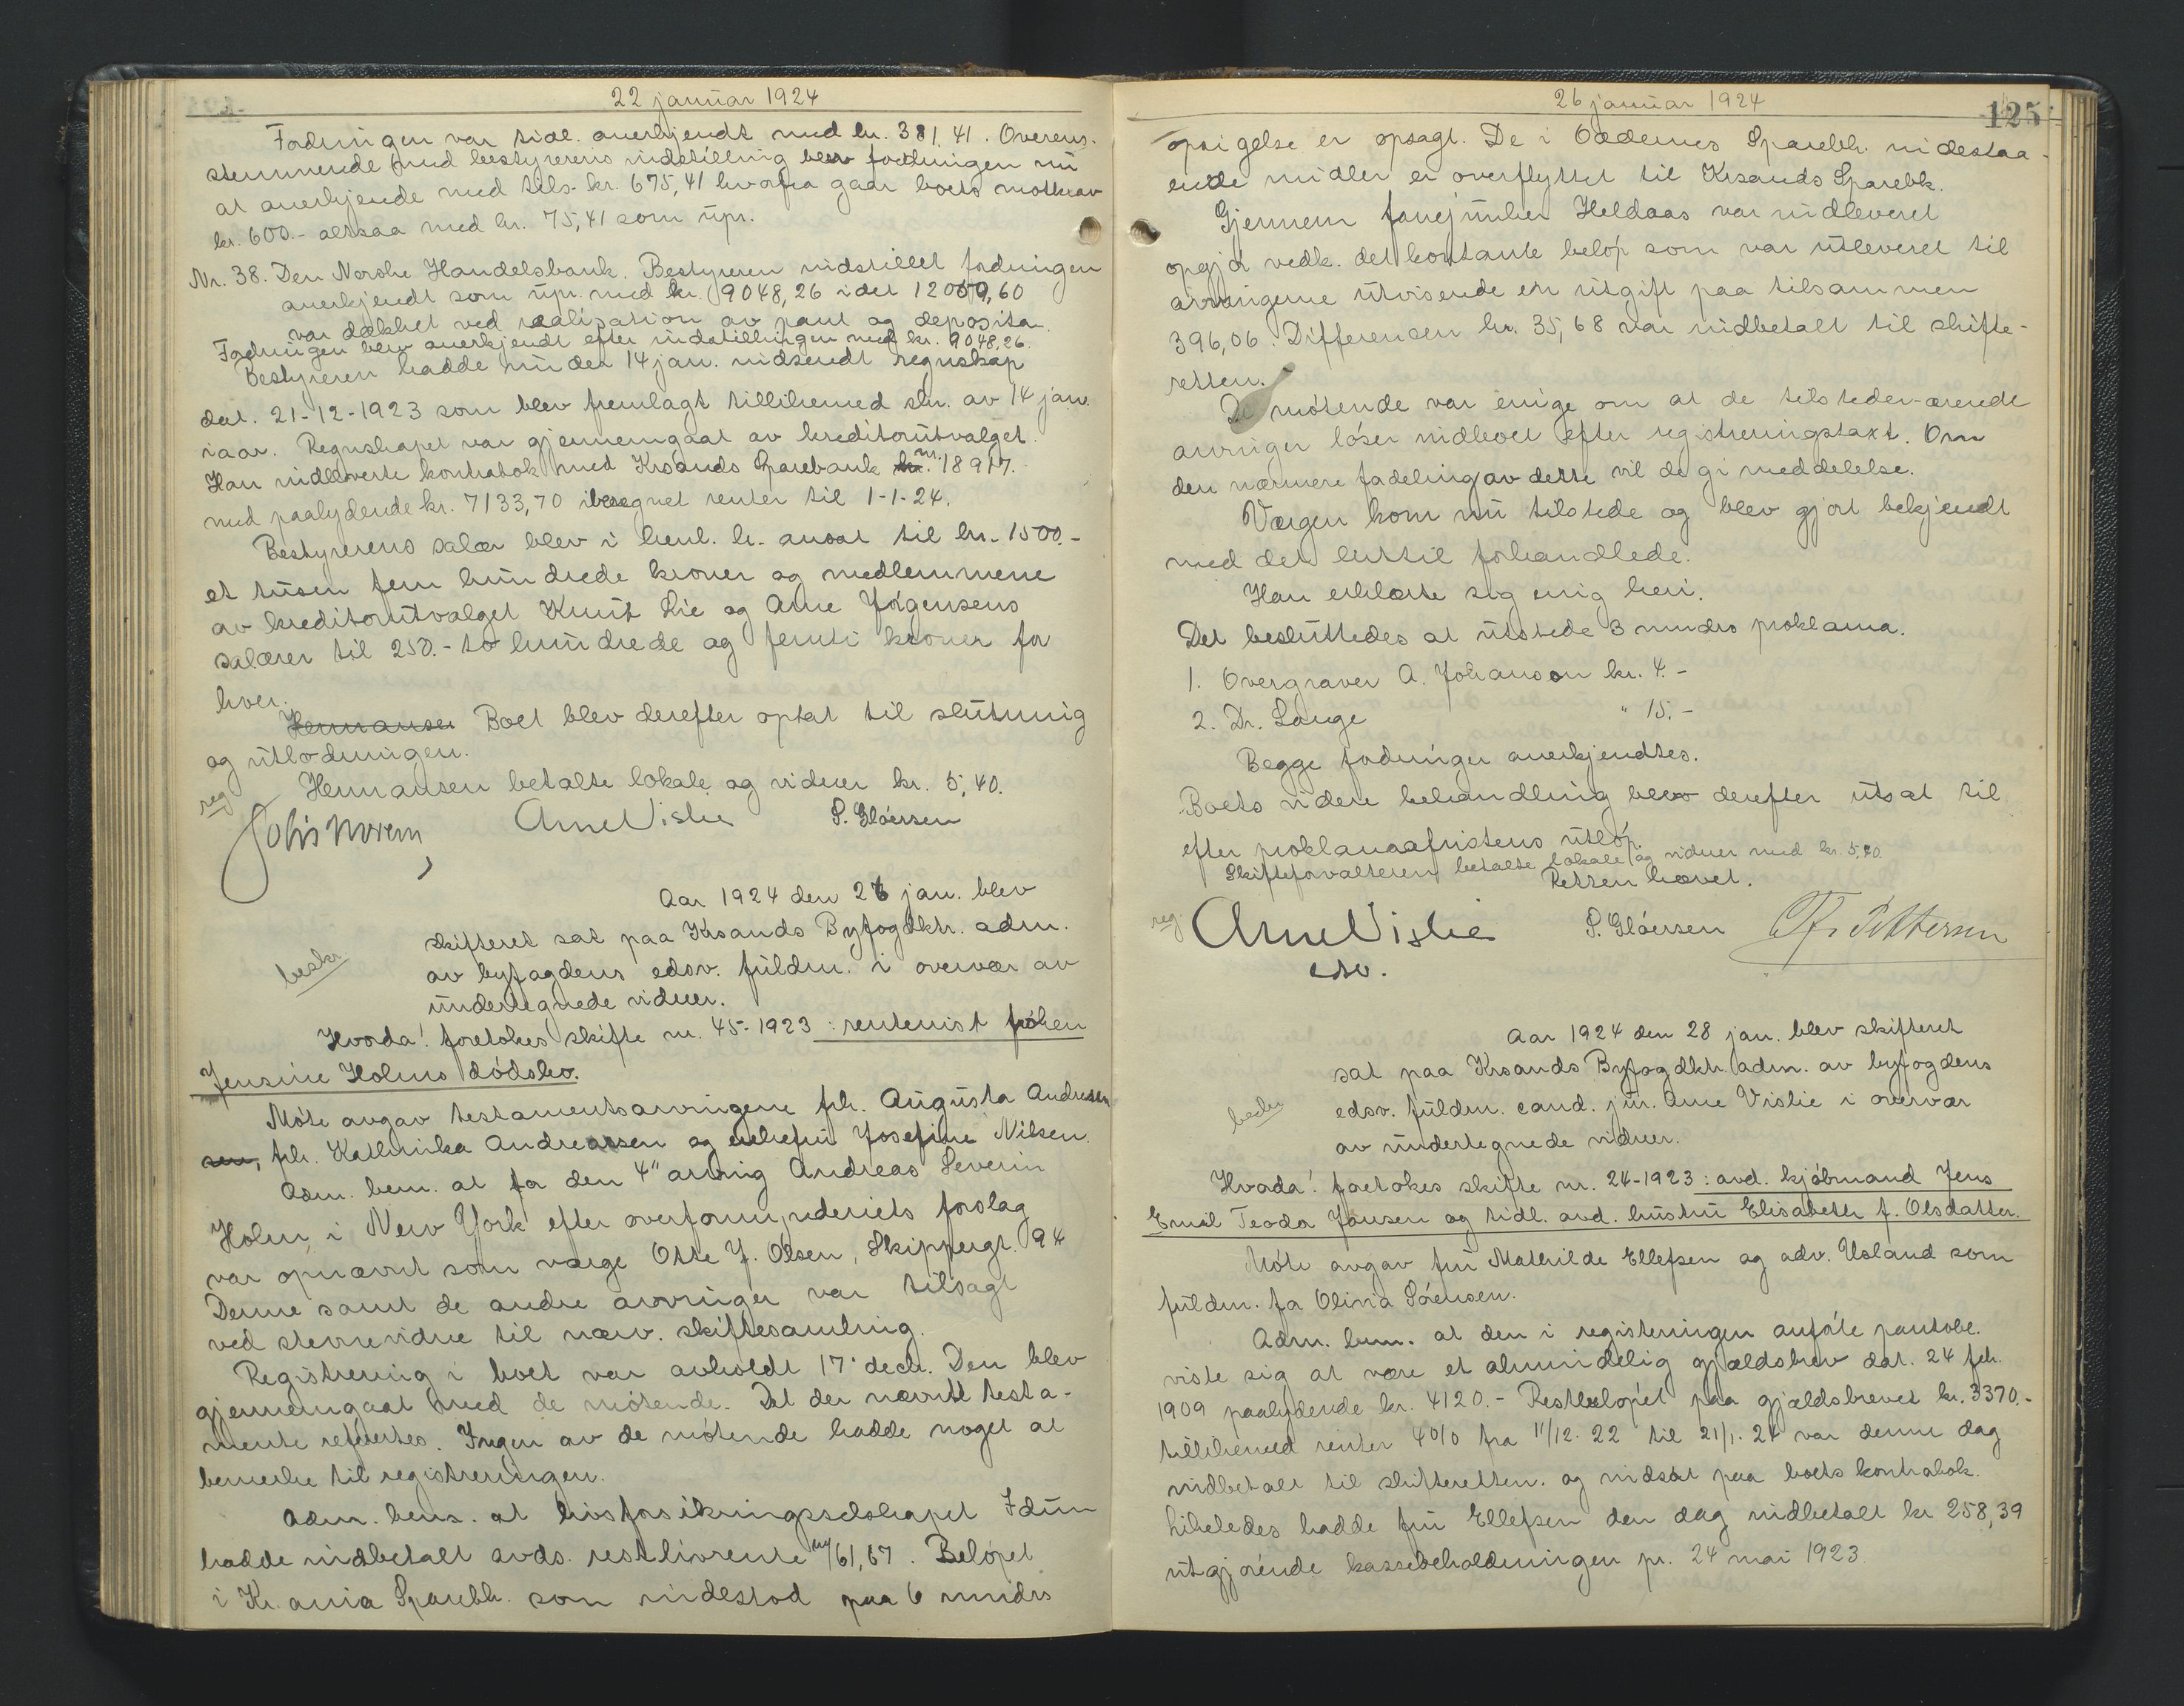 22 januar 1924
Fordringen var tidl. anerkjendt med kr. 381,41. Overens-
stemmende med bestyrerens indstilling blev fordringen nu
at anerkjende med tils. kr. 675,41 hvorfra gaar boets motkrav
kr. 600.- altsaa med kr. 75,41 som upr.
Nr. 38. Den Norske Handelsbank. Bestyreren indstillet fordringen
anerkjendt som upr. med kr. 9048,26 idet 12000,60
var dækket ved realisation av pant og deposita.
Fordringen blev anerkjendt efter indstillingen med kr. 9048,26.
Bestyreren hadde under 14 jan. indsendt regnskap
dat. 21-12-1923 som blev fremlagt tillikemed skr. av 14 jan.
iaar. Regnskapet var gjennemgaat av kreditorutvalget.
Han indleverte kontrabok med Krsands Sparebank nr. 18917.
med paalydende kr. 7133,70 iberegnet renter til 1-1-24.
Bestyrerens salær blev i henh. h. ansat til kr. 1500.-
et tusen fem hundrede kroner og medlemmene
av kreditorutvalget Knut Lie og Arne Jørgensens
salærer til 250.- to hundrede og femti kroner for
hver.
Hermansen Boet blev derefter optat til slutning
og utlodningen.
reg Hermansen betalte lokale og vidner kr. 5,40.
Johs Norem, Arne Vislie S. Gløersen
Aar 1924 den 26 jan. blev
skifteret sat paa Krsands Byfogdktr. adm.
beskr av byfogdens edsv. fuldm. i overvær av
undertegnede vidner.
Hvorda! foretokes skifte nr. 45-1923: rentenist frøken
Jensine Holms dødsbo.
Møte avgav testamentsarvingene frk. Augusta Andreassen
sen, frk. Kathinka Andreassen og enkefru Josefine Nilsen.
Adm. bem. at for den 4" arving Andreas Severin
Holm, i New York efter overformynderiets forslag
var opnævnt som værge Otto J. Olsen, Skippergt. 94
Denne samt de andre arvinger var tilsagt
ved stevnevidne til nærv. skiftesamling.
Registrering i boet var avholdt 17' decbr. Den blev
gjennemgaat med de møtende. Det der nævnte testa-
mente refertes. Ingen av de møtende hadde noget at
bemerke til registreringen.
Adm. bem. at livsforsikringsselskapet Idun
hadde indbetalt avds. restlivrente kr 61,67. Beløpet
i Kr.ania Sparebk. som indestod paa 6 mndrs
26 januar 1924
125
opsigelse er opsagt. De i Oddernes Sparebk. indestaa-
ende midler er overflyttet til Krsands Sparebk.
Gjennem forvejunker Heldaas var indleveret
opgjør vedk. det kontante beløp som var utleveret til
arvingerne utvisende en utgift paa tilsammen
396,06. Differensen kr. 35,68 var indbetalt til skifte-
retten.
De møtende var enige om at de tilstedeværende
arvinger løser indboet efter registreringstaxt. Om
den nærmere fordeling av dette vil de gi meddelelse.
Værgen kom nu tilstede og blev gjort bekjendt
med det hittil forhandlede.
Han erklærte sig enig heri.
Det besluttedes at utstede 3 mndrs proklama.
1. Overgraver A. Johanson kr. 4.-
2. Dr. Lange " 15.-
Begge fordringer anerkjendtes.
Boets videre behandling blev derefter utsat til
efter proklamafristens utløp.
Skifteforvalteren betalte lokale og vidner med kr. 5,20.
Retten hævet.
reg Arne Vislie S. Gløersen Th. Pettersen
edsv.
Aar 1924 den 28 jan. blev skifteret
sat paa Krsands Byfogdktr. adm. av byfogdens
beskr edsv. fuldm. cand. jur. Arne Vislie i overvær
av undertegnede vidner.
Hvorda! foretokes skifte nr. 24-1923: avd. kjøbmand Jens
Emil Teodor Jansen og tidl. avd. hustru Elisabeth f. Olsdatter.
Møte avgav fru Mathilde Ellefsen og adv. Usland som
fuldm. for Olivia Sørensen.
Adm. bem. at den i registreringen anførte pantobl.
viste sig at være et almindelig gjældsbrev dat. 24 feb.
1909 paalydende kr. 4120.- Restbeløpet paa gjældsbrevet kr. 3370.-
tillikemed renter 4% fra 11/12.22 til 21/1.24 var denne dag
indbetalt til skifteretten og indsat paa boets kontrabok.
Likeledes hadde fru Ellefsen den dag indbetalt kr 258,39
utgjørende kassebeholdningen pr. 24 mai 1923.